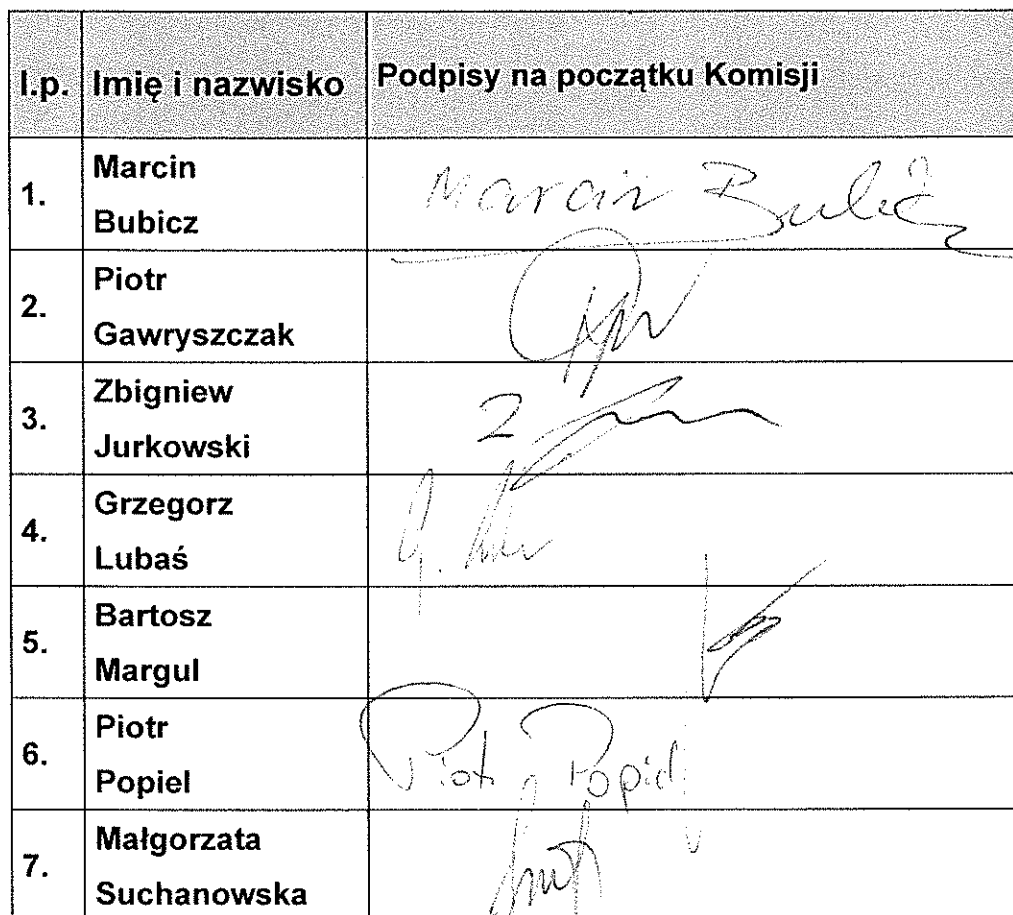 l.p. Imię i nazwisko Podpisy na początku Komisji
1. Marcin
Bubicz
Marcin Bubicz
2. Piotr
Gawryszczak
3. Zbigniew
Jurkowski
Z
4. Grzegorz
Lubaś
G.
5. Bartosz
Margul
6. Piotr
Popiel
Piotr Popiel
7. Małgorzata
Suchanowska